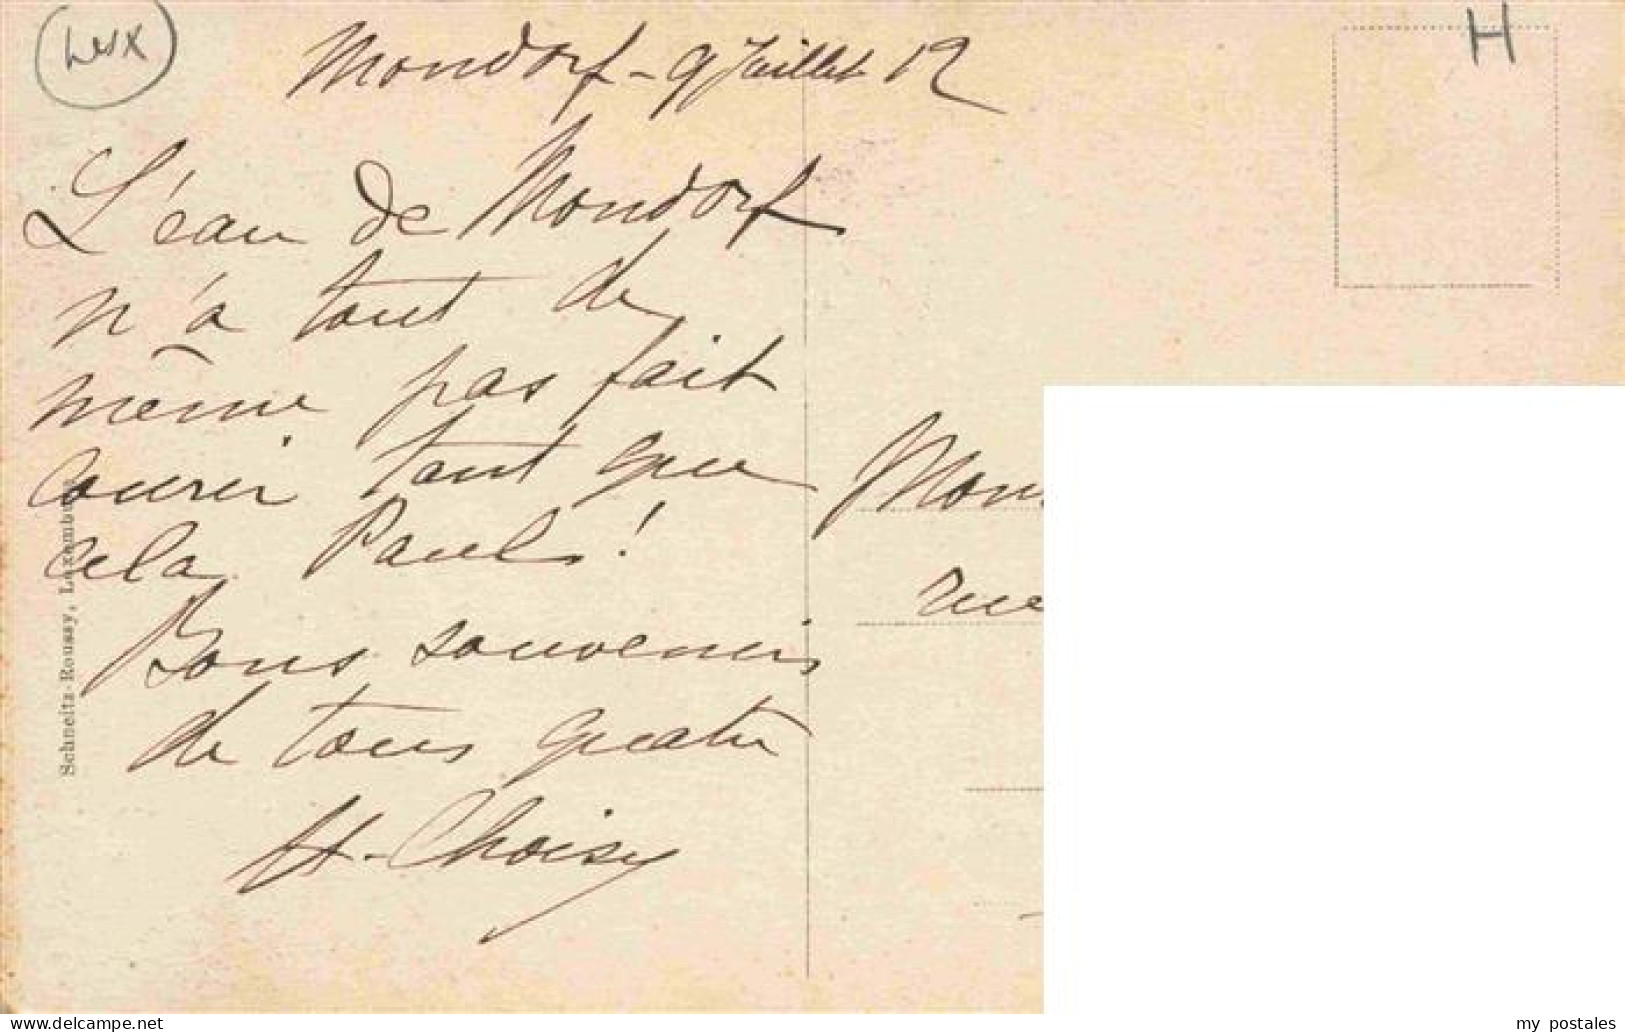 Lux
H
Mondorf - 9 Juillet 12
L'éau de Mondorf
n'a tout de
même pas fait
courir tant que
cela Pauls!
Bons souvenirs
de tous quatre
H. Choisy
Mons
rue
Schneitz-Roussy, Luxembourg
www.delcampe.net
my_postales